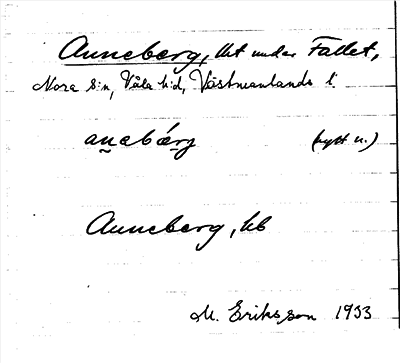 Anneberg, lht under Fallet,
Nora s:n, Våla h:d, Västmanlands l.
anebärg (nytt n.)
Anneberg, hb
M. Eriksson 1933